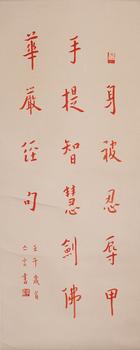 身被忍辱甲
手提智慧劍佛
華嚴經句
壬午歲首